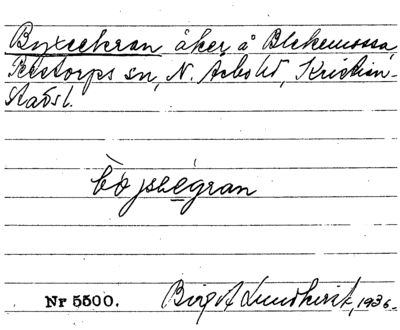 Byxeekran åker å Blekemossa,
Röstorps sn, N. Asbo hd, Kristian-
stads l.
bòjseègran
Nr 5500. Birgit Lundkvist, 1936.